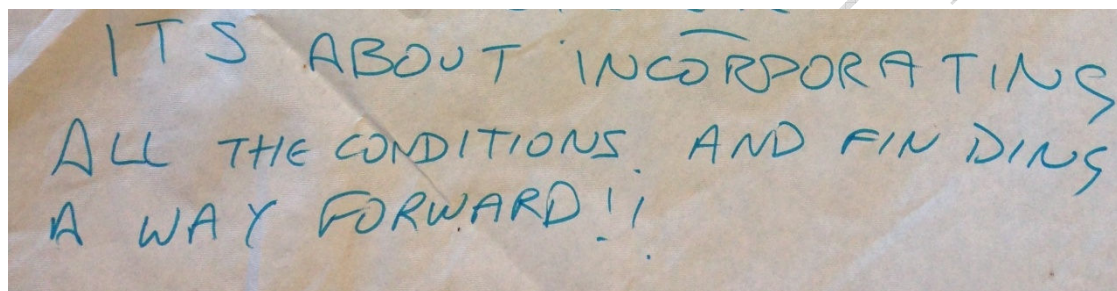 ITS ABOUT INCORPORATING
ALL THE CONDITIONS. AND FINDING
A WAY FORWARD!!